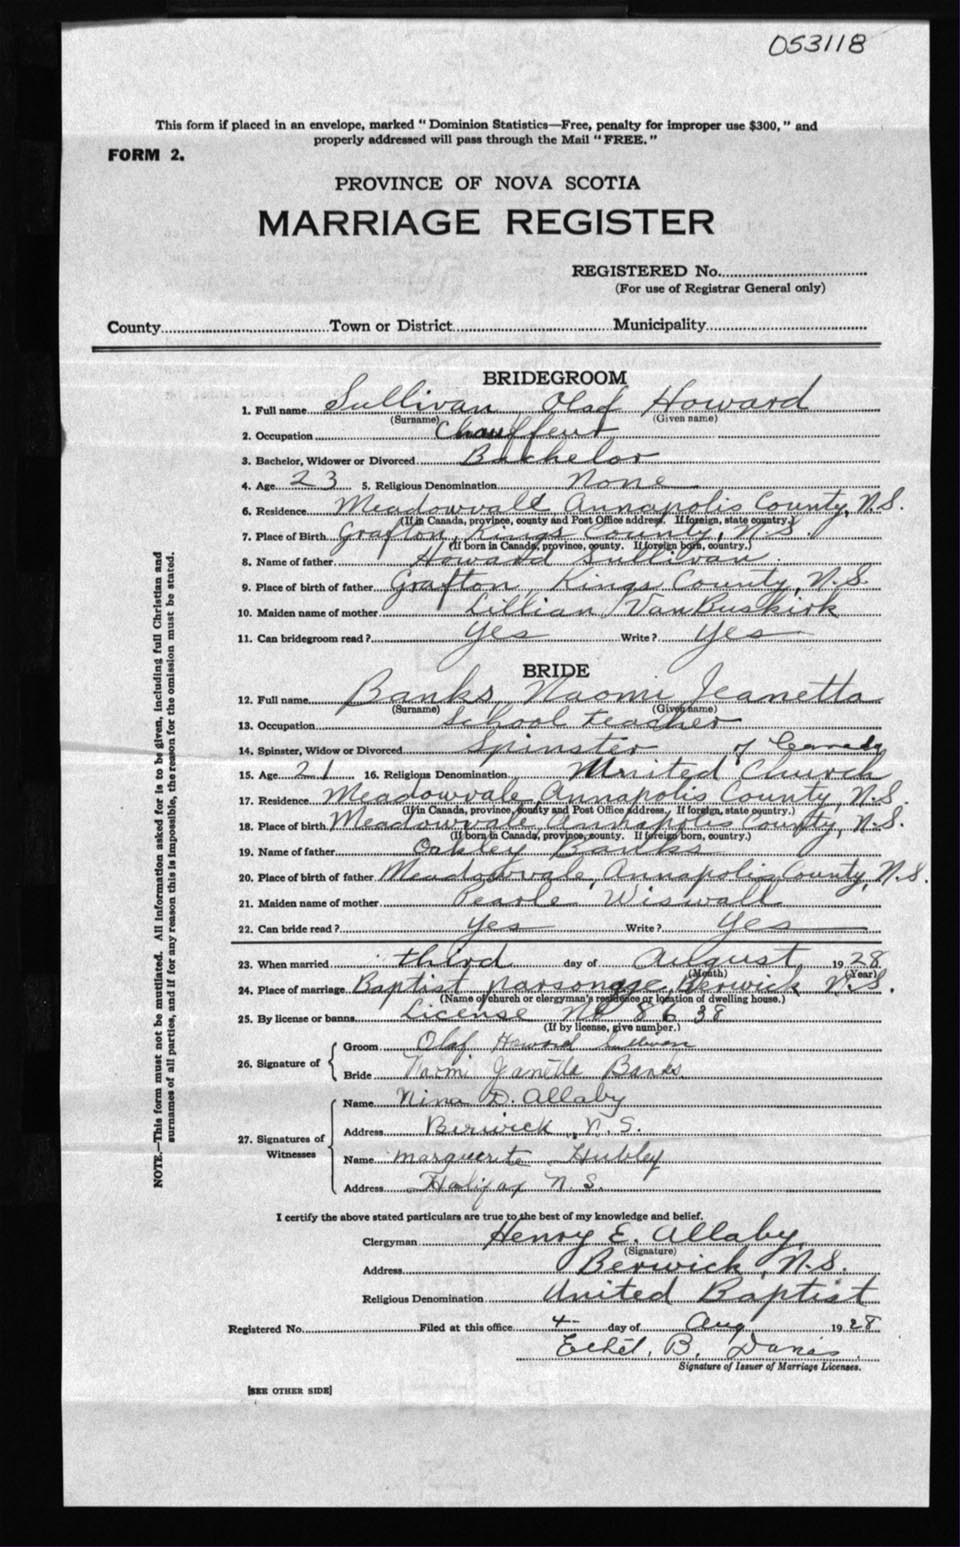 053118
This form if placed in an envelope, marked "Dominion Statistics—Free, penalty for improper use $300," and
properly addressed will pass through the Mail "FREE."
FORM 2.
PROVINCE OF NOVA SCOTIA
MARRIAGE REGISTER
REGISTERED No.
(For use of Registrar General only)
County Town or District Municipality
BRIDEGROOM
1. Full name Sullivan Olaf Howard
(Surname) (Given name)
2. Occupation Chauffeur
3. Bachelor, Widower or Divorced Bachelor
4. Age 23 5. Religious Denomination None
6. Residence Meadowvale Annapolis County, N.S.
(If in Canada, province, county and Post Office address. If foreign, state country.)
7. Place of Birth Grafton, Kings County, N.S.
(If born in Canada, province, county. If foreign born, country.)
8. Name of father Howard Sullivan
9. Place of birth of father Grafton, Kings County, N.S.
10. Maiden name of mother Lillian VanBuskirk
11. Can bridegroom read? Yes Write? Yes
BRIDE
12. Full name Banks, Naomi Jeanetta
(Surname) (Given name)
13. Occupation School teacher
14. Spinster, Widow or Divorced Spinster of Canada
15. Age 21 16. Religious Denomination United Church
17. Residence Meadowvale, Annapolis County, N.S.
(If in Canada, province, county and Post Office address. If foreign, state country.)
18. Place of birth Meadowvale Annapolis County, N.S.
(If born in Canada, province, county. If foreign born, country.)
19. Name of father Oakley Banks
20. Place of birth of father Meadowvale, Annapolis County, N.S.
21. Maiden name of mother Pearle Wiswall
22. Can bride read? Yes Write? Yes
23. When married third day of August 1928
(Month) (Year)
24. Place of marriage Baptist parsonage, Berwick N.S.
(Name of church or clergyman's residence or location of dwelling house.)
25. By license or banns License No 8638
(If by license, give number.)
26. Signature of
Groom Olaf Howard Sullivan
Bride Naomi Janetta Banks
27. Signatures of Witnesses
Name Nina D. Allaby
Address Berwick, N.S.
Name Marguerite Hubley
Address Halifax N.S.
I certify the above stated particulars are true to the best of my knowledge and belief.
Clergyman Henry E. Allaby
(Signature)
Address Berwick, N.S.
Religious Denomination United Baptist
Registered No. Filed at this office 4 day of Aug 1928
Ethel. B. Davis
Signature of Issuer of Marriage Licenses.
[SEE OTHER SIDE]
NOTE.—This form must not be mutilated. All information asked for is to be given, including full Christian and
surnames of all parties, and if for any reason this is impossible, the reason for the omission must be stated.